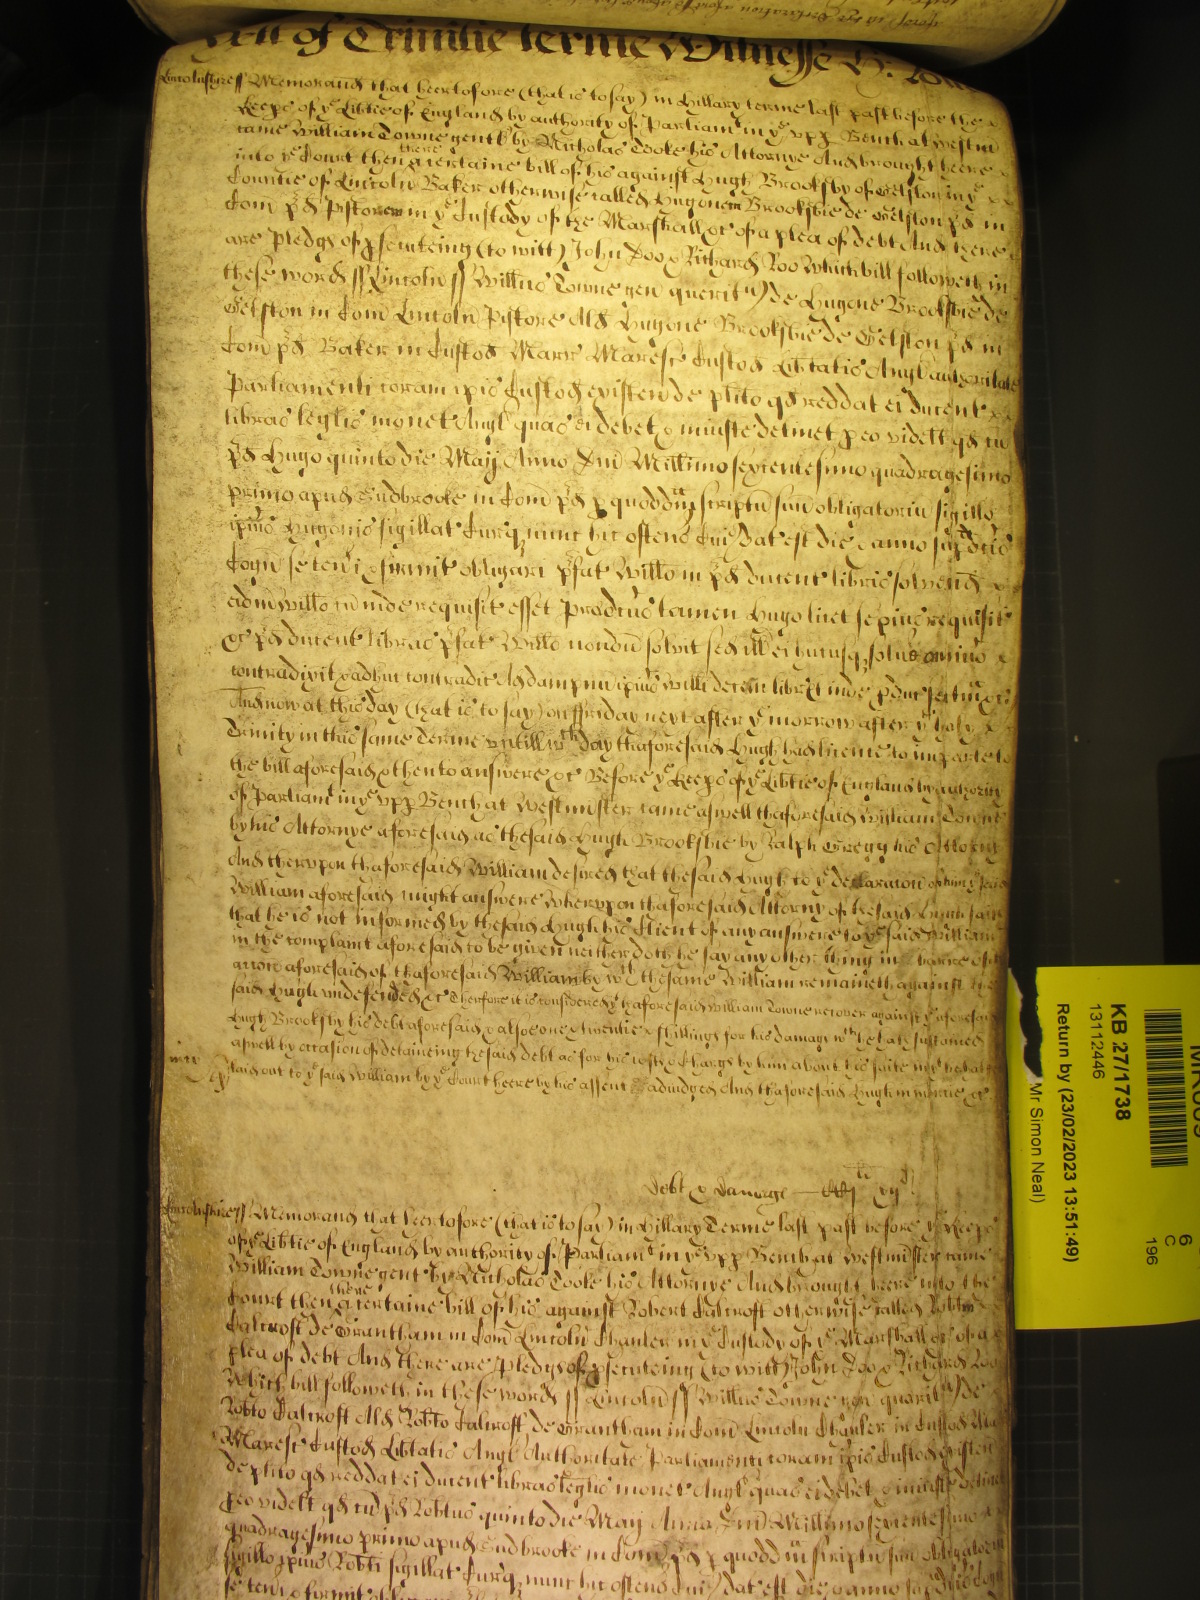 yett of Trinitie terme Witnesse H: Rolle
Lincolnshyre ss Memorand that heertofore (that is to say) in Hillary terme last past before the
Keeps of ye Libtie of England by authority of Parliamt in ye vpp Bench at Westm
came William Towne gent by Nicholas Tooke his Attornye And brought heere
into ye Court then there a certaine bill of his against Hugh Brooksby of Gelston in ye
Countie of Lincoln Baker otherwise called Hugonem Brooksbie de Gelston pd in
Com pd Pistorem in ye Custody of the Marshall &c of a plea of debt And there
are Pledgs of psecuteing (to witt) John Doo & Richard Roo Which bill followeth in
these words ss Lincoln ss Willus Towne gen querit de Hugone Brooksbie de
Gelston in Com Lincoln Pistore Als Hugone Brooksbie de Gelston pd in
Com pd Baker in Custod Marr Maresc Custod Libtatis Angl authoritate
Parliamenti coram ipis Custod existen de plito qd reddat ei ducent
libras leglis monet Angl quas ei debet & iniuste detinet p eo videlt qd cu
pd Hugo quinto die Maij Anno Dni Millimo sexcentesimo quadragesimo
primo apud Sudbrooke in Com pd p quoddm scriptu suu obligatoriu sigillo
ipius Hugonis sigillat Curq nunc hic ostens Cui dat est die & anno supdcis
Cogn se teneri & firmit obligari pfat Willo in pd ducent libris solvend
eidm Willo cu inde requisit esset Prodcus tamen Hugo licet sepius requisit
&c pd ducent libras pfat Willo nondu solvit sed ill ei hucusq solve omnino
contradixit & adhuc contradic Ad dampnu ipius Willi decem libr Et inde pduc sectam &c
And now at this day (that is to say) on ffriday next after ye morrow after ye holy
Trinity in this same Terme vntill wch day thaforesaid Hugh had licence to imparle to
the bill aforesaid & then to answere &c Before ye Keeps of ye Libtie of England by authority
of Parliamt in ye vpp Bench at Westminster came aswell thaforesaid William Towne
by his Attornye aforesaid as thesaid Hugh Brooksbie by Ralph Gregg his Attorny
And thervpon thaforesaid William desired that thesaid Hugh to ye declaration
William aforesaid might answere Whervpon thaforesaid Attorny of thesaid Hugh saith
that he is not informed by thesaid Hugh his Client of any answere to ye said William
in the complaint aforesaid to be given neither doth he say any other thing in barre of
accon aforesaid of thaforesaid William by wch thesame William remaineth against the
said Hugh vndefended &c Therfore it is considered yt thaforesaid William Towne recover against ye aforesaid
Hugh Brooksby his debt aforesaid & alsoe one & twentie shillings for his damags wch he hath sustained
aswell by occasion of detaineing thesaid debt as for his costs & Chargs by him about his suite
laid out to ye said William by ye Court heere by his assent adiudged And thaforesaid Hugh in mercie &c
Debt & damage
Lincolnshire ss Memorand that heertofore (that is to say) in Hillary Terme last past before ye Keeps
of ye Libtie of England by authority of Parliamt in ye vpp Bench at Westminster came
William Towne gent by Nicholas Tooke his Attornye And brought heere into the
Court then there a certaine bill of his against Robert Calcroft otherwise called Robtm
Calcroft de Grantham in Com Lincoln Chanler in ye Custody of ye Marshall &c of a
plea of debt And there are Pledgs of psecuteing (to witt) John Doo & Richard Roo
Which bill followeth in these words ss Lincoln ss Willus Towne gen querit de
Robto Calcroft Als Robto Calcroft de Grantham in Com Lincoln Chanler in Custod Marr
Maresc Custod Libtatis Angl Authoritate Parliamenti coram ipis Custod existen
de plito qd reddat ei ducent libras leglis monet Angl quas ei debet & iniuste detinet
p eo videlt qd cu pd Robtus quinto die Maij Anno Dni Millimo sexcentesimo
quadragesimo primo apud Sudbrooke in Com pd p quoddm scriptu suu obligatoriu
sigillo ipius Robti sigillat Curq nunc hic ostens Cui dat est die & anno supdcis Cogn
se teneri & firmit
KB 27/1738
13112446
Return by (23/02/2023 13:51:49)
Mr Simon Neal)
6
C
196